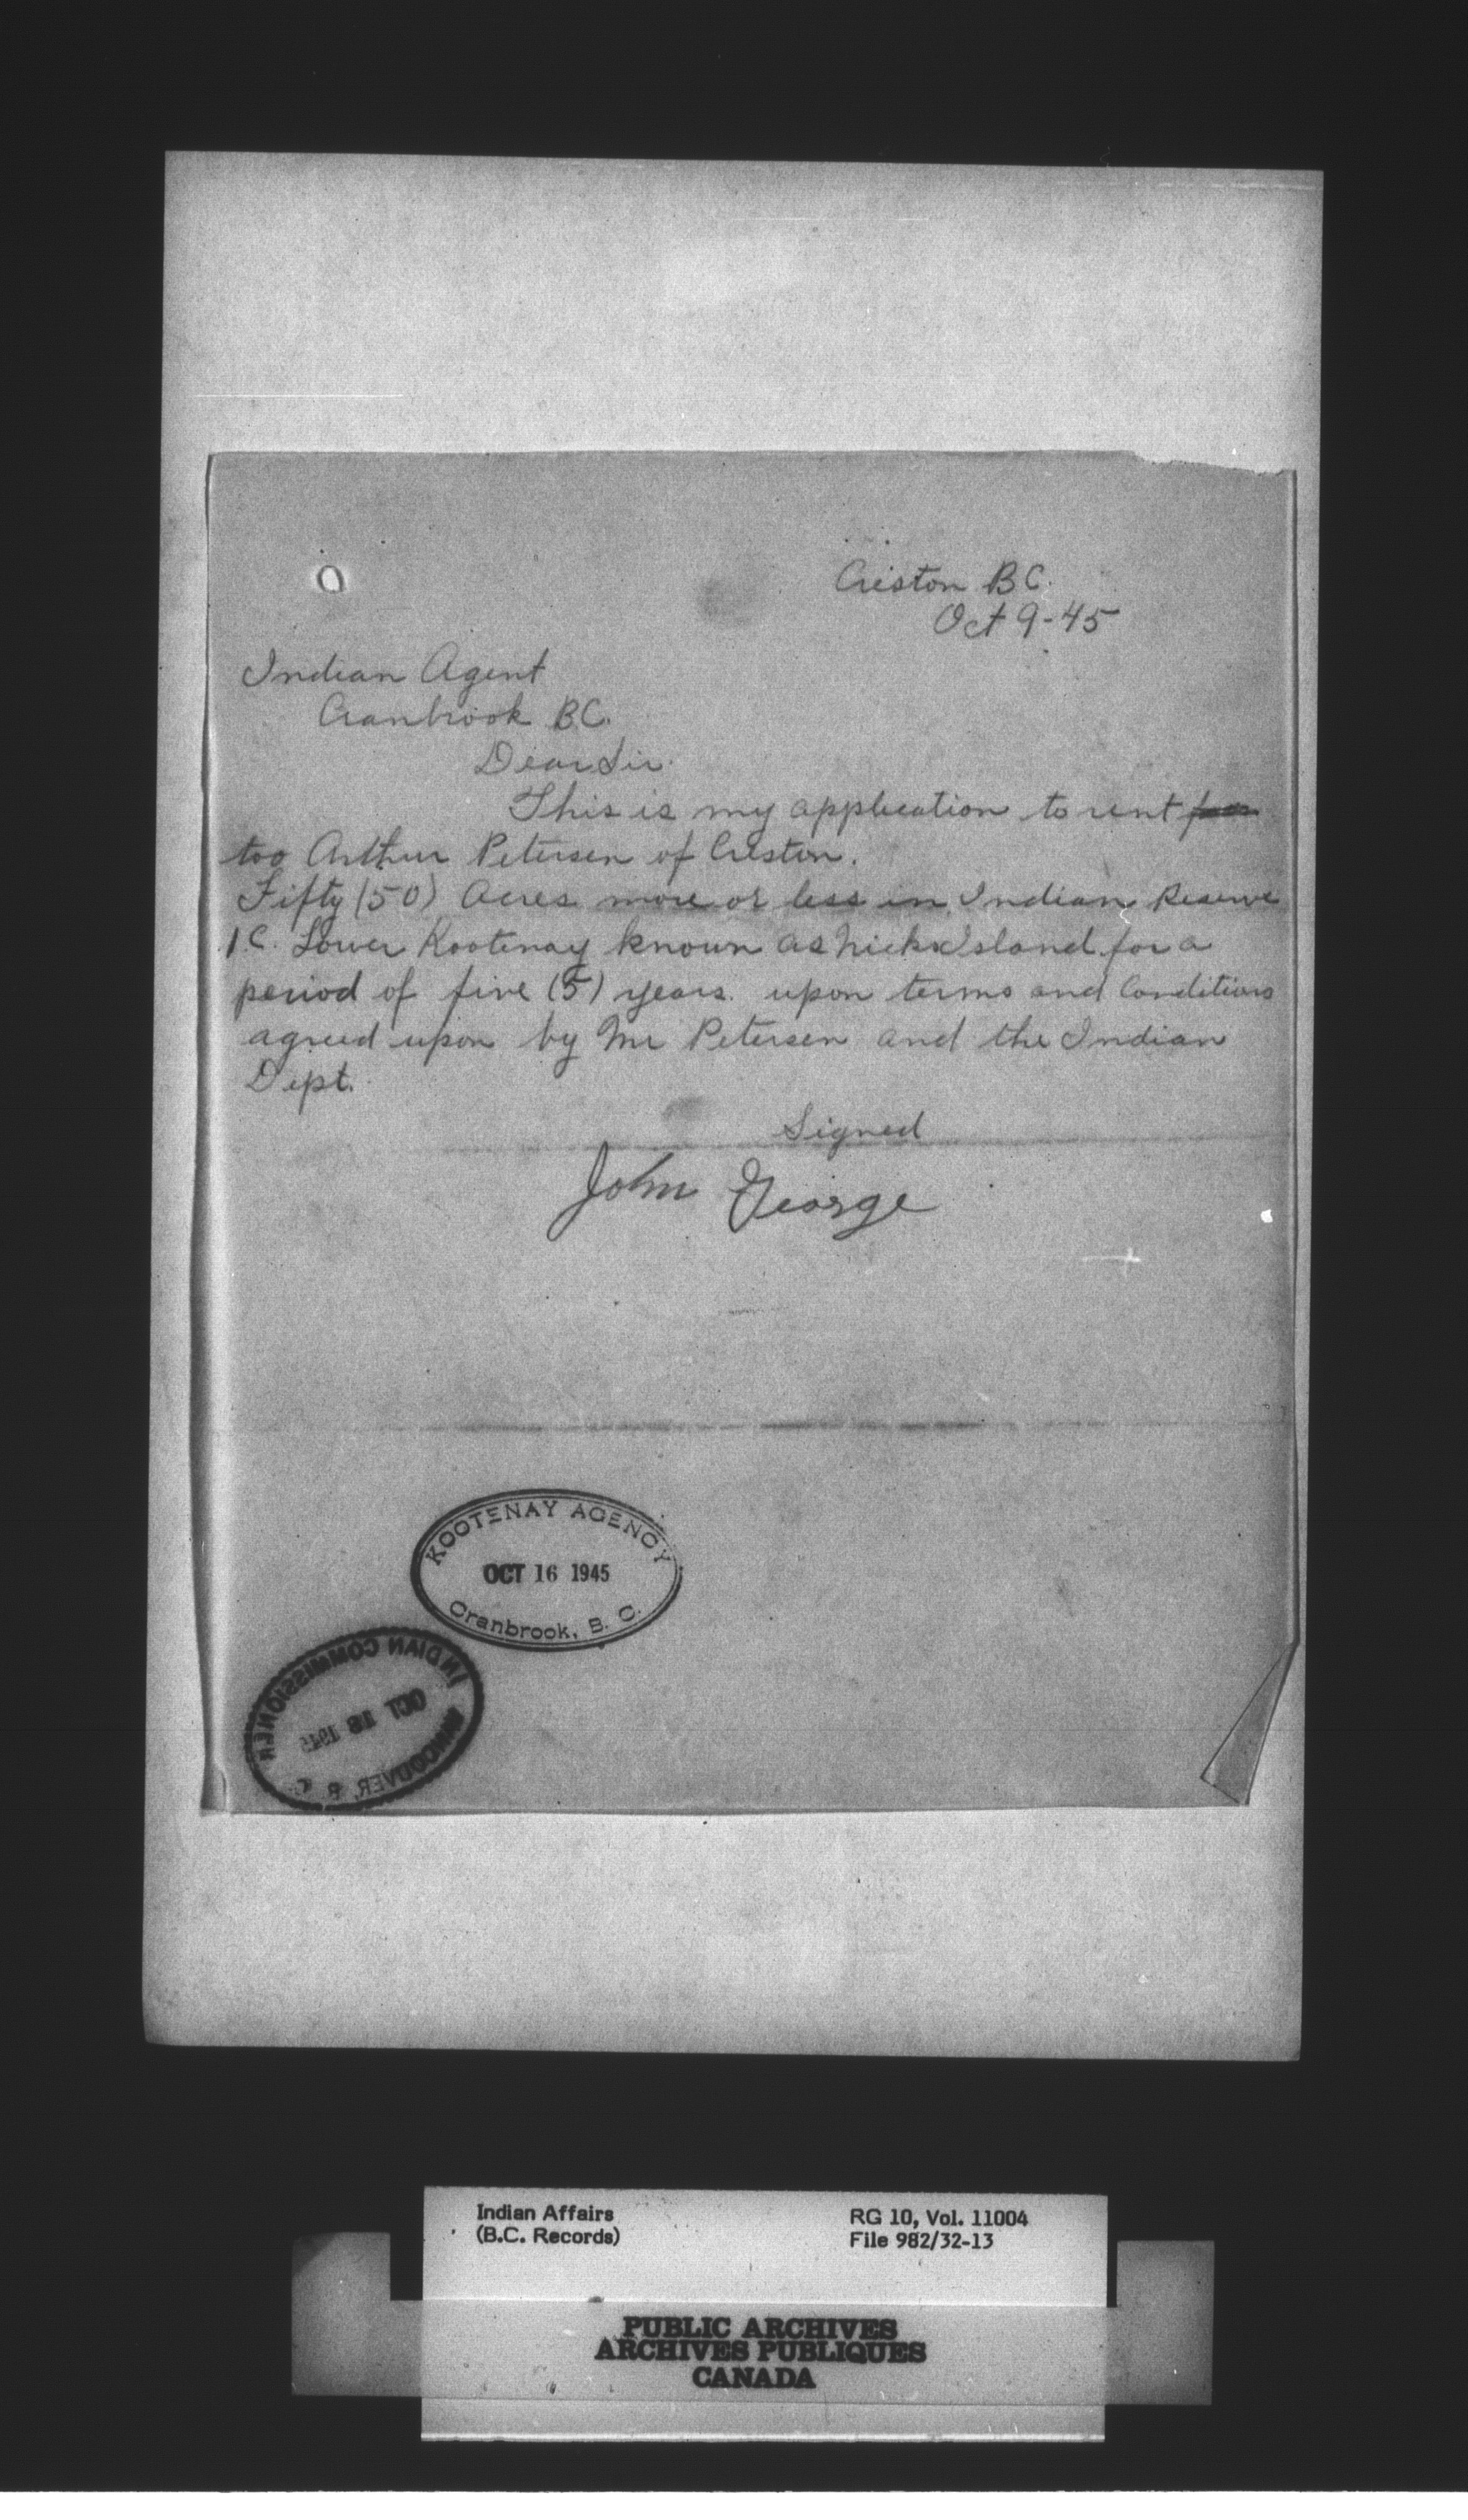 Creston BC.
Oct 9-45
Indian Agent
Cranbrook B.C.
Dear Sir.
This is my application to rent
too Arthur Petersen of Creston.
Fifty (50) Acres more or less in Indian Reserve
1 C. Lower Kootenay known as Nicks Island for a
period of five (5) years. upon terms and Conditions
agreed upon by Mr Petersen and the Indian
Dept.
Signed
John George
KOOTENAY AGENCY
OCT 16 1945
Cranbrook, B. C.
INDIAN COMMISSIONER
OCT 18 1945
VANCOUVER B C
Indian Affairs
(B.C. Records)
RG 10, Vol. 11004
File 982/32-13
PUBLIC ARCHIVES
ARCHIVES PUBLIQUES
CANADA